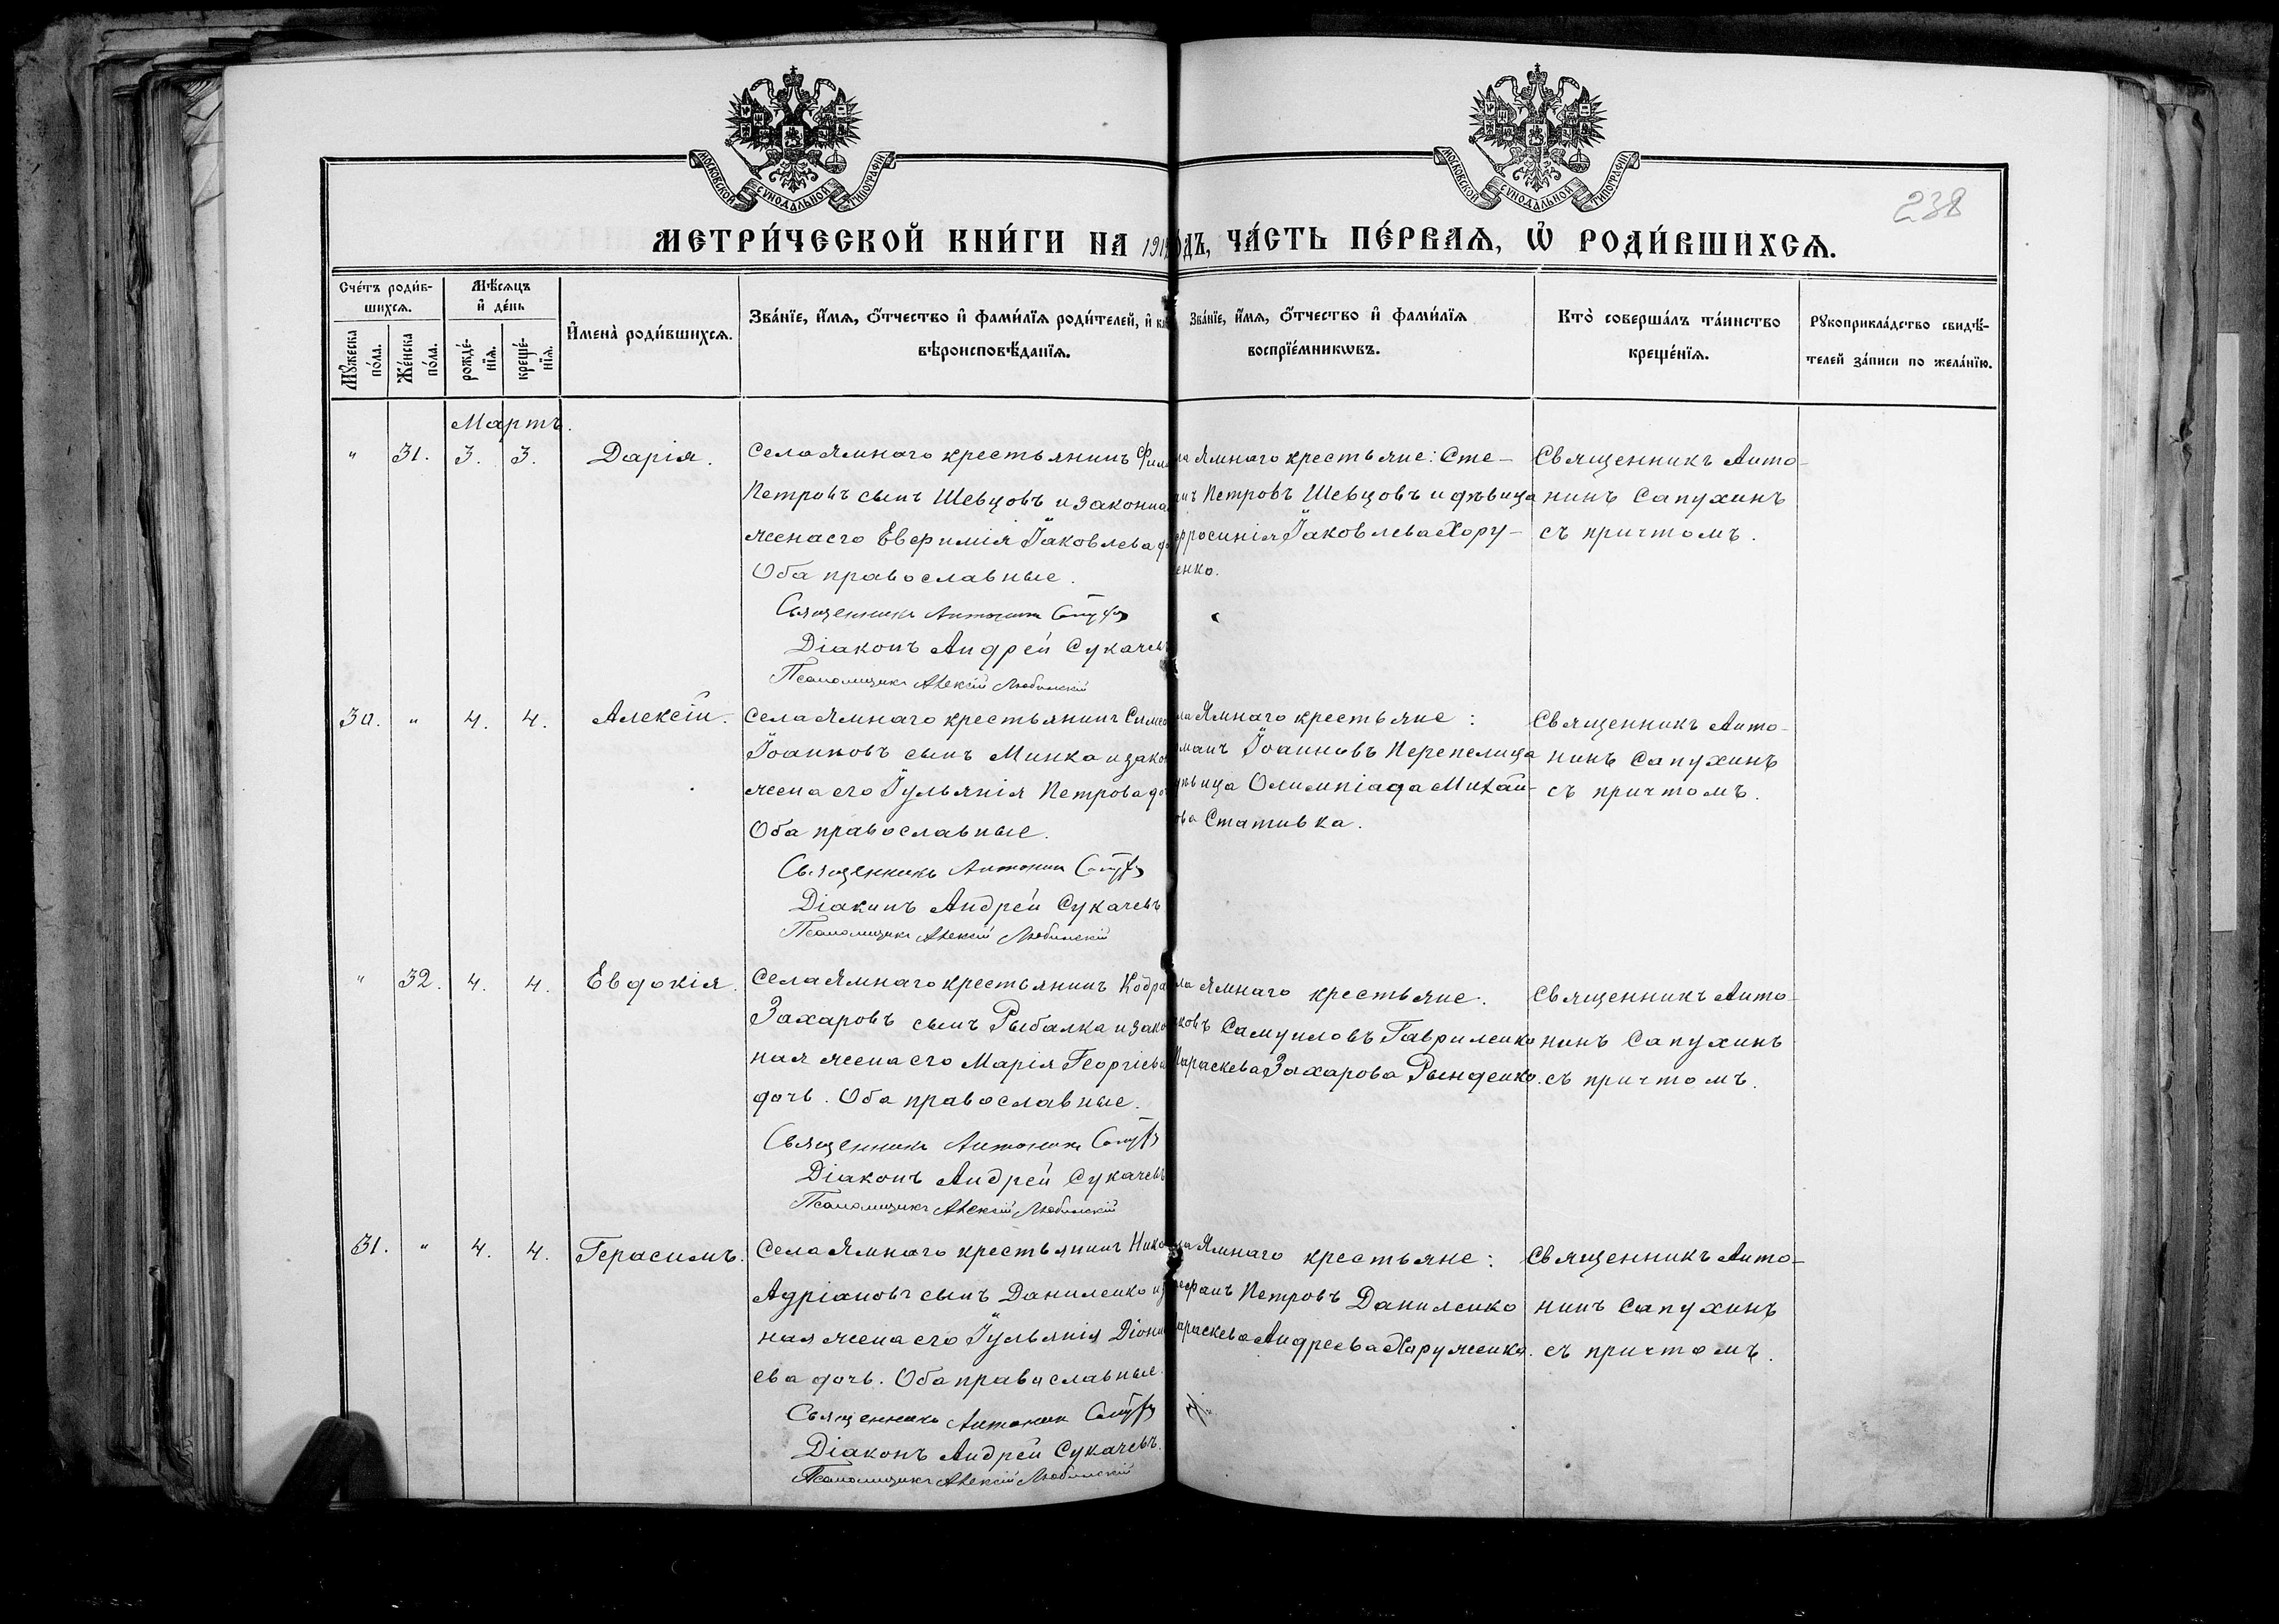 МОСКОВСКОЙ СѴНОДАЛЬНОЙ ТИПОГРАФІИ
МОСКОВСКОЙ СѴНОДАЛЬНОЙ ТИПОГРАФІИ
238
МЕТРИ́ЧЕСКОЙ КНИ́ГИ НА 191
ОДЪ, ЧА́СТЬ ПЕ́РВАѦ, Ѽ РОДИ́ВШИХСѦ.
Сче́тъ роди́в-
шихсѧ.
Мꙋ́жеска по́ла.
Же́нска по́ла.
Мѣ́сѧцъ
и҆ де́нь
рожде́-
нїѧ.
креще́-
нїѧ.
И҆мена̀ роди́вшихсѧ.
Зва́нїе, и҆́мѧ, ѻ҆́тчество и҆ фами́лїѧ роди́телей, и҆
вѣроисповѣ́данїѧ.
Зва́нїе, и҆́мѧ, ѻ҆́тчество и҆ фами́лїѧ
воспрїе́мникѡвъ.
Кто̀ соверша́лъ та́инство
креще́нїѧ.
Рꙋкоприкла́дство свидѣ́-
телей за́писи по жела́нїю.
Мартъ.
" 31. 3. 3. Дарія.
Села Ямнаго крестьянинъ Фил
Петровъ сынъ Шевцовъ и законна
жена его Евфимія Іаковлева до
Оба православные.
Священникъ Антонинъ
Діаконъ Андрей Сукачевъ
Псаломщикъ Алексій Любинскій
ла Ямнаго крестьяне: Сте-
анъ Петровъ Шевцовъ и дѣвица
фросинія Іаковлева Хору-
енко.
Священникъ Анто-
нинъ Сапухинъ
съ причтомъ.
30. " 4. 4. Алексій.
Села Ямнаго крестьянинъ Симео
Іоанновъ сынъ Минка и закон
жена его Іульянія Петрова до
Оба православные.
Священникъ Антонинъ
Діаконъ Андрей Сукачевъ
Псаломщикъ Алексій Любинскій
ла Ямнаго крестьяне:
манъ Іоанновъ Перепелица
ѣвица Олимпіада Михаи-
ова Стативка.
Священникъ Анто-
нинъ Сапухинъ
съ причтомъ.
" 32. 4. 4. Евдокія.
Села Ямнаго крестьянинъ Кодра
Захаровъ сынъ Рыбалка и зако
ная жена его Марія Георгіева
дочь. Оба православные.
Священникъ Антонинъ
Діаконъ Андрей Сукачевъ
Псаломщикъ Алексій Любинскій
ла Ямнаго крестьяне:
ковъ Самуиловъ Гавриленко
Параскева Захарова Рынденко.
Священникъ Анто-
нинъ Сапухинъ
съ причтомъ.
31. " 4. 4. Герасимъ.
Села Ямнаго крестьянинъ Нико
Адріановъ сынъ Даниленко и з
ная жена его Іульянія Діони
ева дочь. Оба православные.
Священникъ Антонинъ
Діаконъ Андрей Сукачевъ.
Псаломщикъ Алексій Любинскій
ла Ямнаго крестьяне:
ефанъ Петровъ Даниленко
араскева Андреева Харуженко.
Священникъ Анто-
нинъ Сапухинъ
съ причтомъ.